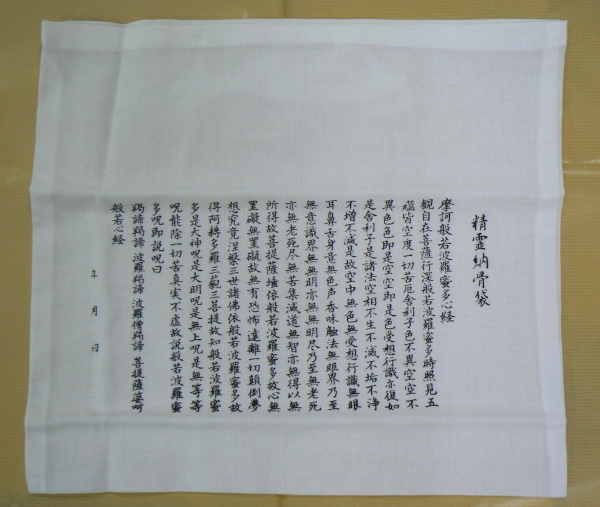 精霊納骨袋
摩訶般若波羅蜜多心経
観自在菩薩行深般若波羅蜜多時照見五
蘊皆空度一切苦厄舎利子色不異空空不
異色色即是空空即是色受想行識亦復如
是舎利子是諸法空相不生不滅不垢不浄
不増不減是故空中無色無受想行識無眼
耳鼻舌身意無色声香味触法無眼界乃至
無意識界無無明亦無無明尽乃至無老死
亦無老死尽無苦集滅道無智亦無得以無
所得故菩提薩埵依般若波羅蜜多故心無
罣礙無罣礙故無有恐怖遠離一切顛倒夢
想究竟涅槃三世諸佛依般若波羅蜜多故
得阿耨多羅三藐三菩提故知般若波羅蜜
多是大神呪是大明呪是無上呪是無等等
呪能除一切苦真実不虚故説般若波羅蜜
多呪即説呪曰
羯諦羯諦 波羅羯諦 波羅僧羯諦 菩提薩婆呵
般若心経
年 月 日